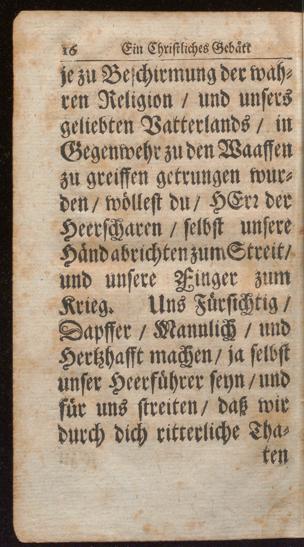 16 Ein Christliches Gebätt
je zu Beschirmung der wah⸗
ren Religion / und unsers
geliebten Vatterlands / in
Gegenwehr zu den Waaffen
zu greiffen getrungen wur⸗
den / wöllest du / HErꝛ der
Heerscharen / selbst unsere
Händ abrichten zum Streit /
und unsere Finger zum
Krieg. Uns Fürsichtig /
Dapffer / Mannlich / und
Hertzhafft machen / ja selbst
unser Heerführer seyn / und
für uns streiten / daß wir
durch dich ritterliche Tha⸗
ten